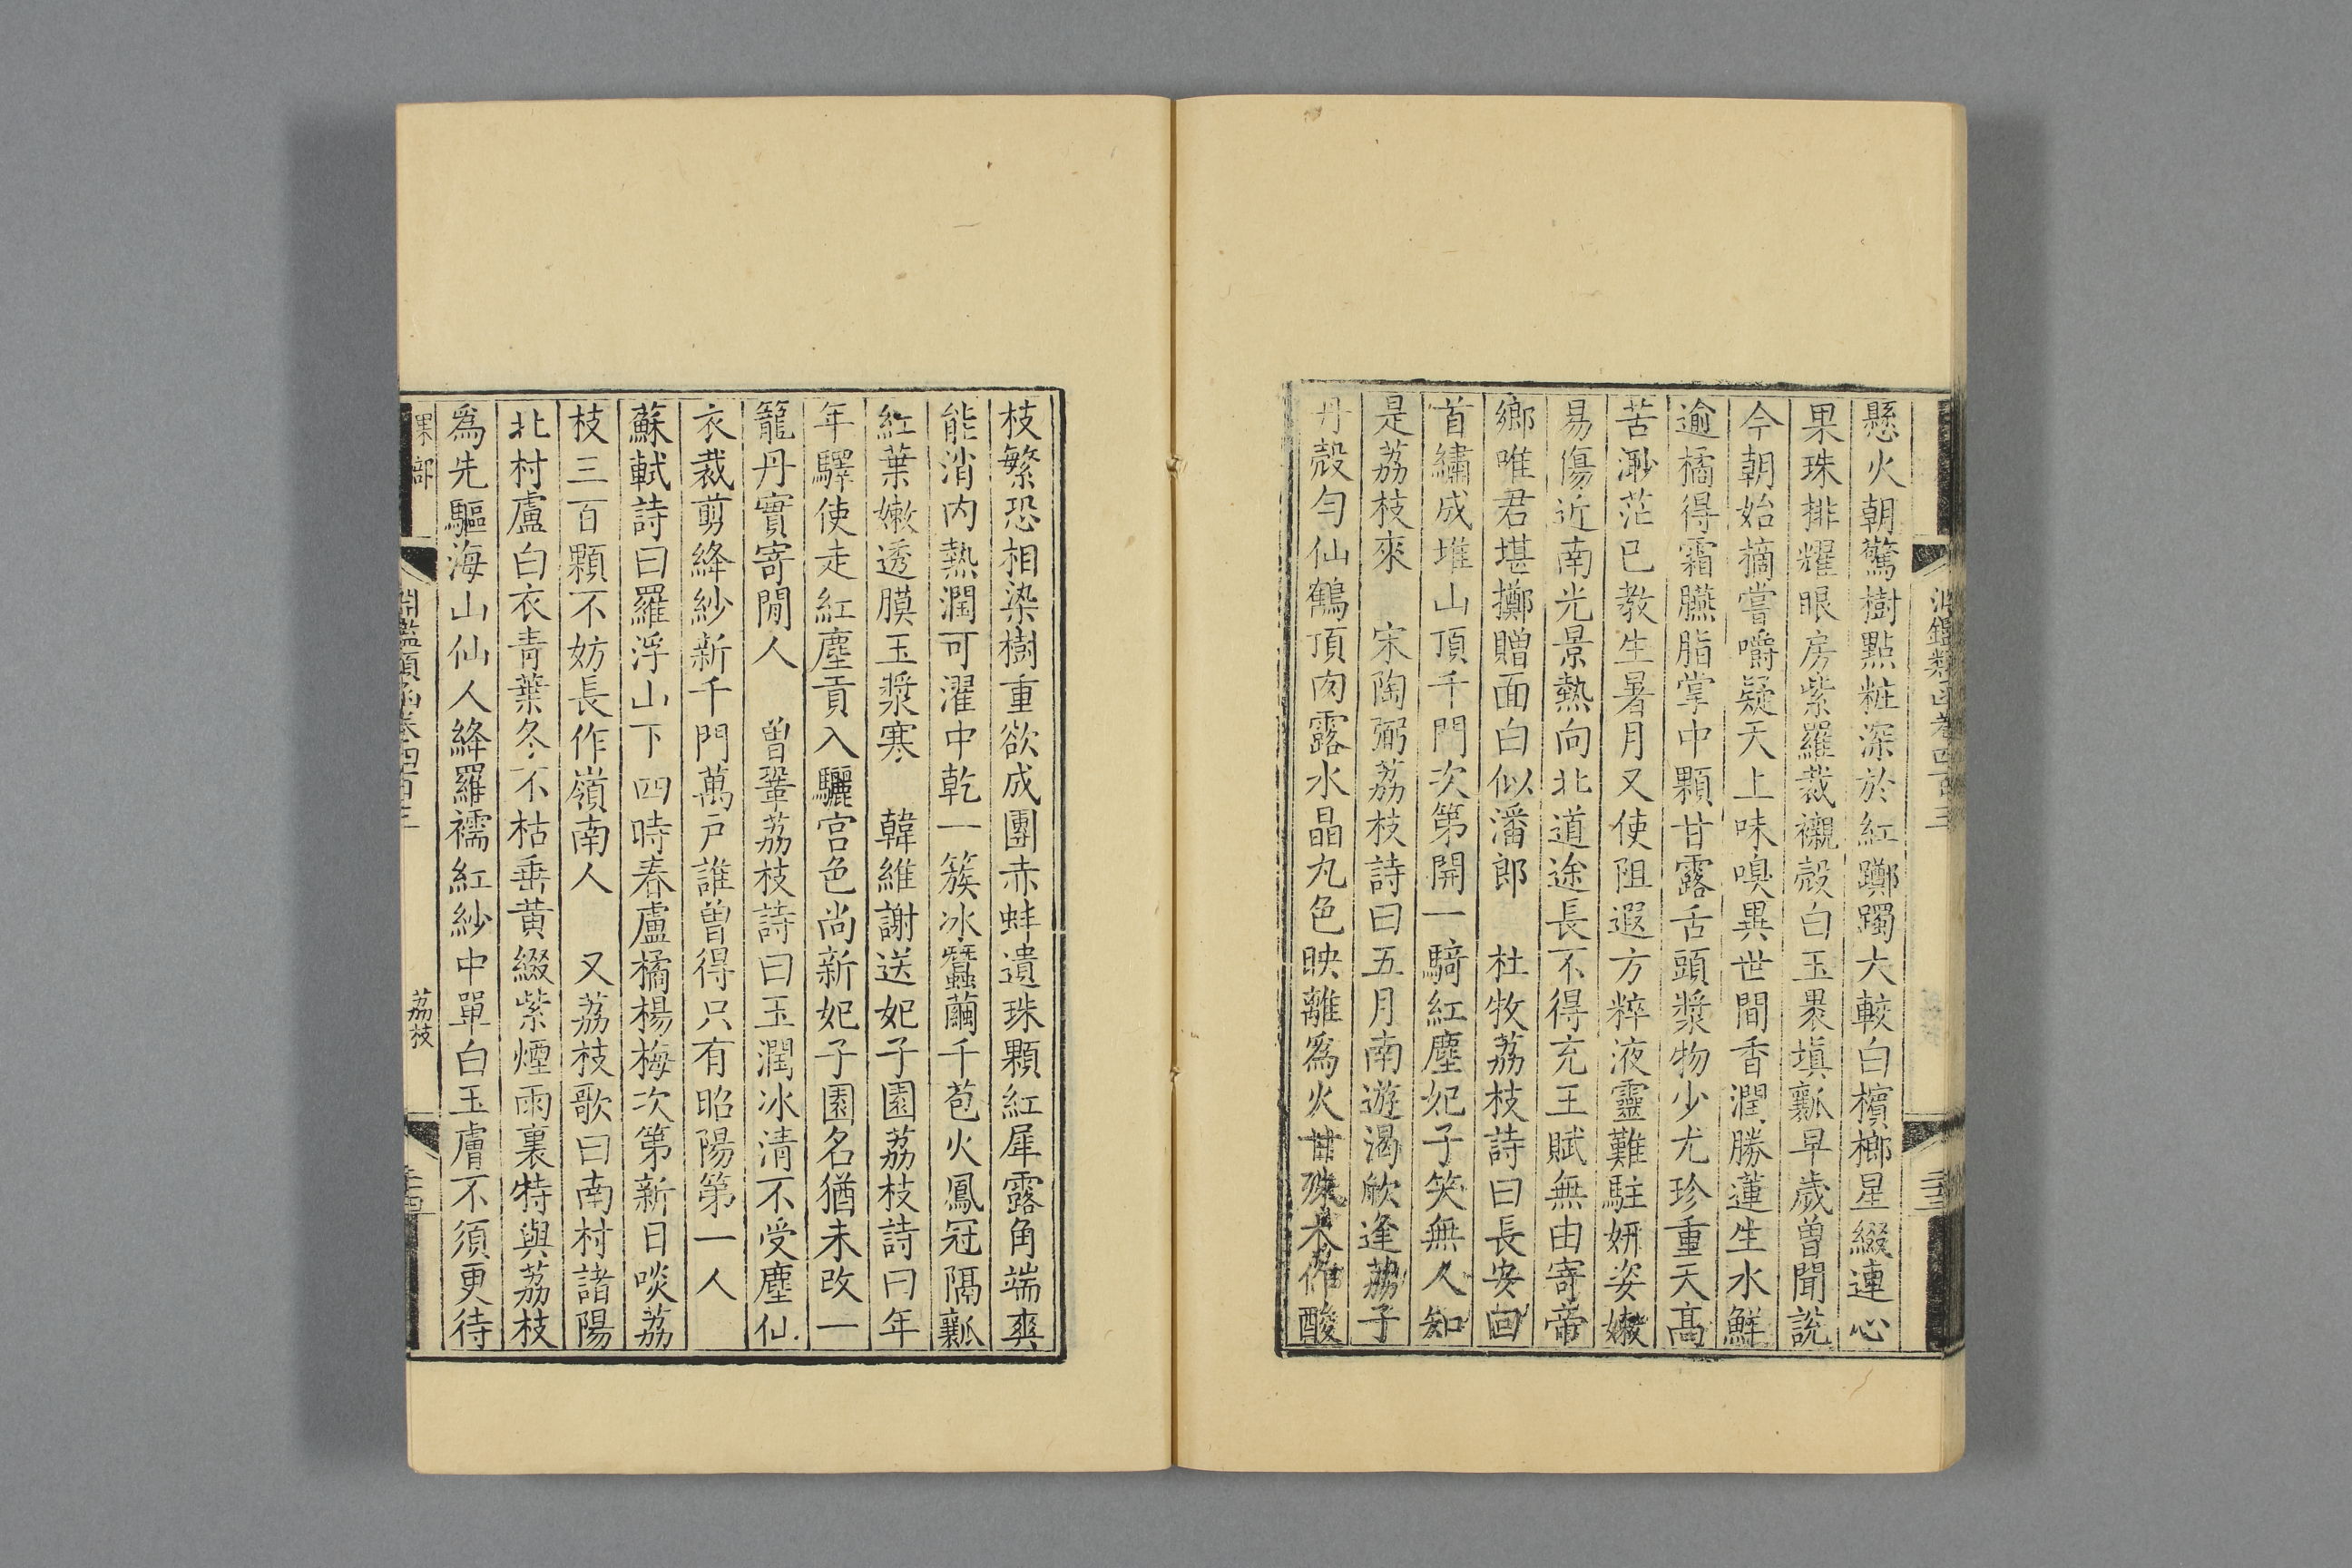 淵鑑類函卷四百三
懸火朝驚樹點粧深於紅躑躅大較白檳榔星綴連心
果珠排耀眼房紫羅裁襯殼白玉褁塡瓤早歲曽聞說
今朝始摘嘗嚼疑天上味嗅異世間香潤勝蓮生水鮮
逾橘得霜臙脂掌中顆甘露舌頭漿物少尤珍重天髙
苦渺茫已教生暑月又使阻遐方粹液靈難駐妍姿嫩
易傷近南光景熱向北道途長不得充王賦無由寄帝
鄉唯君堪擲贈面白似潘郎　杜牧荔枝詩曰長安囘
首繡成堆山頂千門次第開一騎紅塵妃子笑無人知
是荔枝來　宋陶弼荔枝詩曰五月南遊渴欣逢荔子
丹殼勻仙鶴頂肉露水晶丸色映離爲火甘殊木作酸
枝繁恐相染樹重欲成團赤蚌遺珠顆紅犀露角端爽
能消内熱潤可濯中乾一簇冰蠶繭千苞火鳳冠隔瓤
紅葉嫩透膜玉漿寒　韓維謝送妃子園荔枝詩曰年
年驛使走紅塵貢入驪宫色尚新妃子園名猶未改一
籠丹實寄閒人　曽鞏荔枝詩曰玉潤冰清不受塵仙
衣裁剪絳紗新千門萬戸誰曽得只有昭陽第一人
蘇軾詩曰羅浮山下四時春盧橘楊梅次第新日啖荔
枝三百顆不妨長作嶺南人　又荔枝歌曰南村諸陽
北村盧白衣青葉冬不枯垂黄綴紫煙雨裏特與荔枝
爲先驅海山仙人絳羅襦紅紗中單白玉膚不須更待
果部
淵鑑類函卷四百三
荔枝